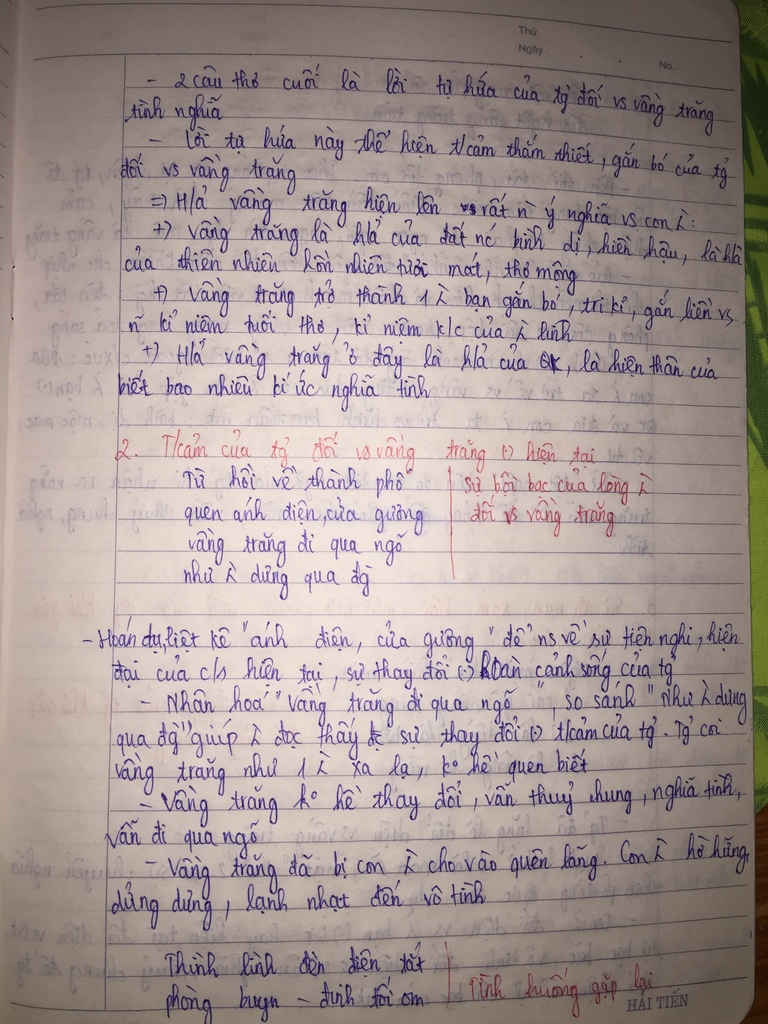 Thứ
Ngày
No.
- 2 câu thơ cuối là lời tự hứa của tg đối vs vầng trăng
tình nghĩa
- Lời tự hứa này thể hiện t/cảm thắm thiết, gắn bó của tg
đối vs vầng trăng
=> H/ả vầng trăng hiện lên rất n ý nghĩa vs con λ:
+) Vầng trăng là h/ả của đất nc bình dị, hiền hậu, là h/ả
của thiên nhiên hồn nhiên tươi mát, thơ mộng
+) Vầng trăng trở thành 1 λ bạn gắn bó, tri kỉ, gắn liền vs
n kỉ niệm tuổi thơ, kỉ niệm k/c của λ lính
+) H/ả vầng trăng ở đây là h/ả của QK, là hiện thân của
biết bao nhiêu kí ức nghĩa tình
2. T/cảm của tg đối vs vầng trăng (-) hiện tại
Từ hồi về thành phố
quen ánh điện, cửa gương
vầng trăng đi qua ngõ
như λ dưng qua đg
sự bội bạc của lòng λ
đối vs vầng trăng
- Hoán dụ, liệt kê "ánh điện, cửa gương" để ns về sự tiện nghi, hiện
đại của c/s hiện tại, sự thay đổi (-) hoàn cảnh sống của tg
- Nhân hoá "vầng trăng đi qua ngõ", so sánh "như λ dưng
qua đg" giúp λ đọc thấy sự thay đổi (-) t/cảm của tg. Tg coi
vầng trăng như 1 λ xa lạ, k° hề quen biết
- Vầng trăng k° hề thay đổi, vẫn thuỷ chung, nghĩa tình,
vẫn đi qua ngõ
- Vầng trăng đã bị con λ cho vào quên lãng. Con λ hờ hững,
dửng dưng, lạnh nhạt đến vô tình
Thình lình đèn điện tắt
phòng buyn - đinh tối om
Tình huống gặp lại
HẢI TIẾN